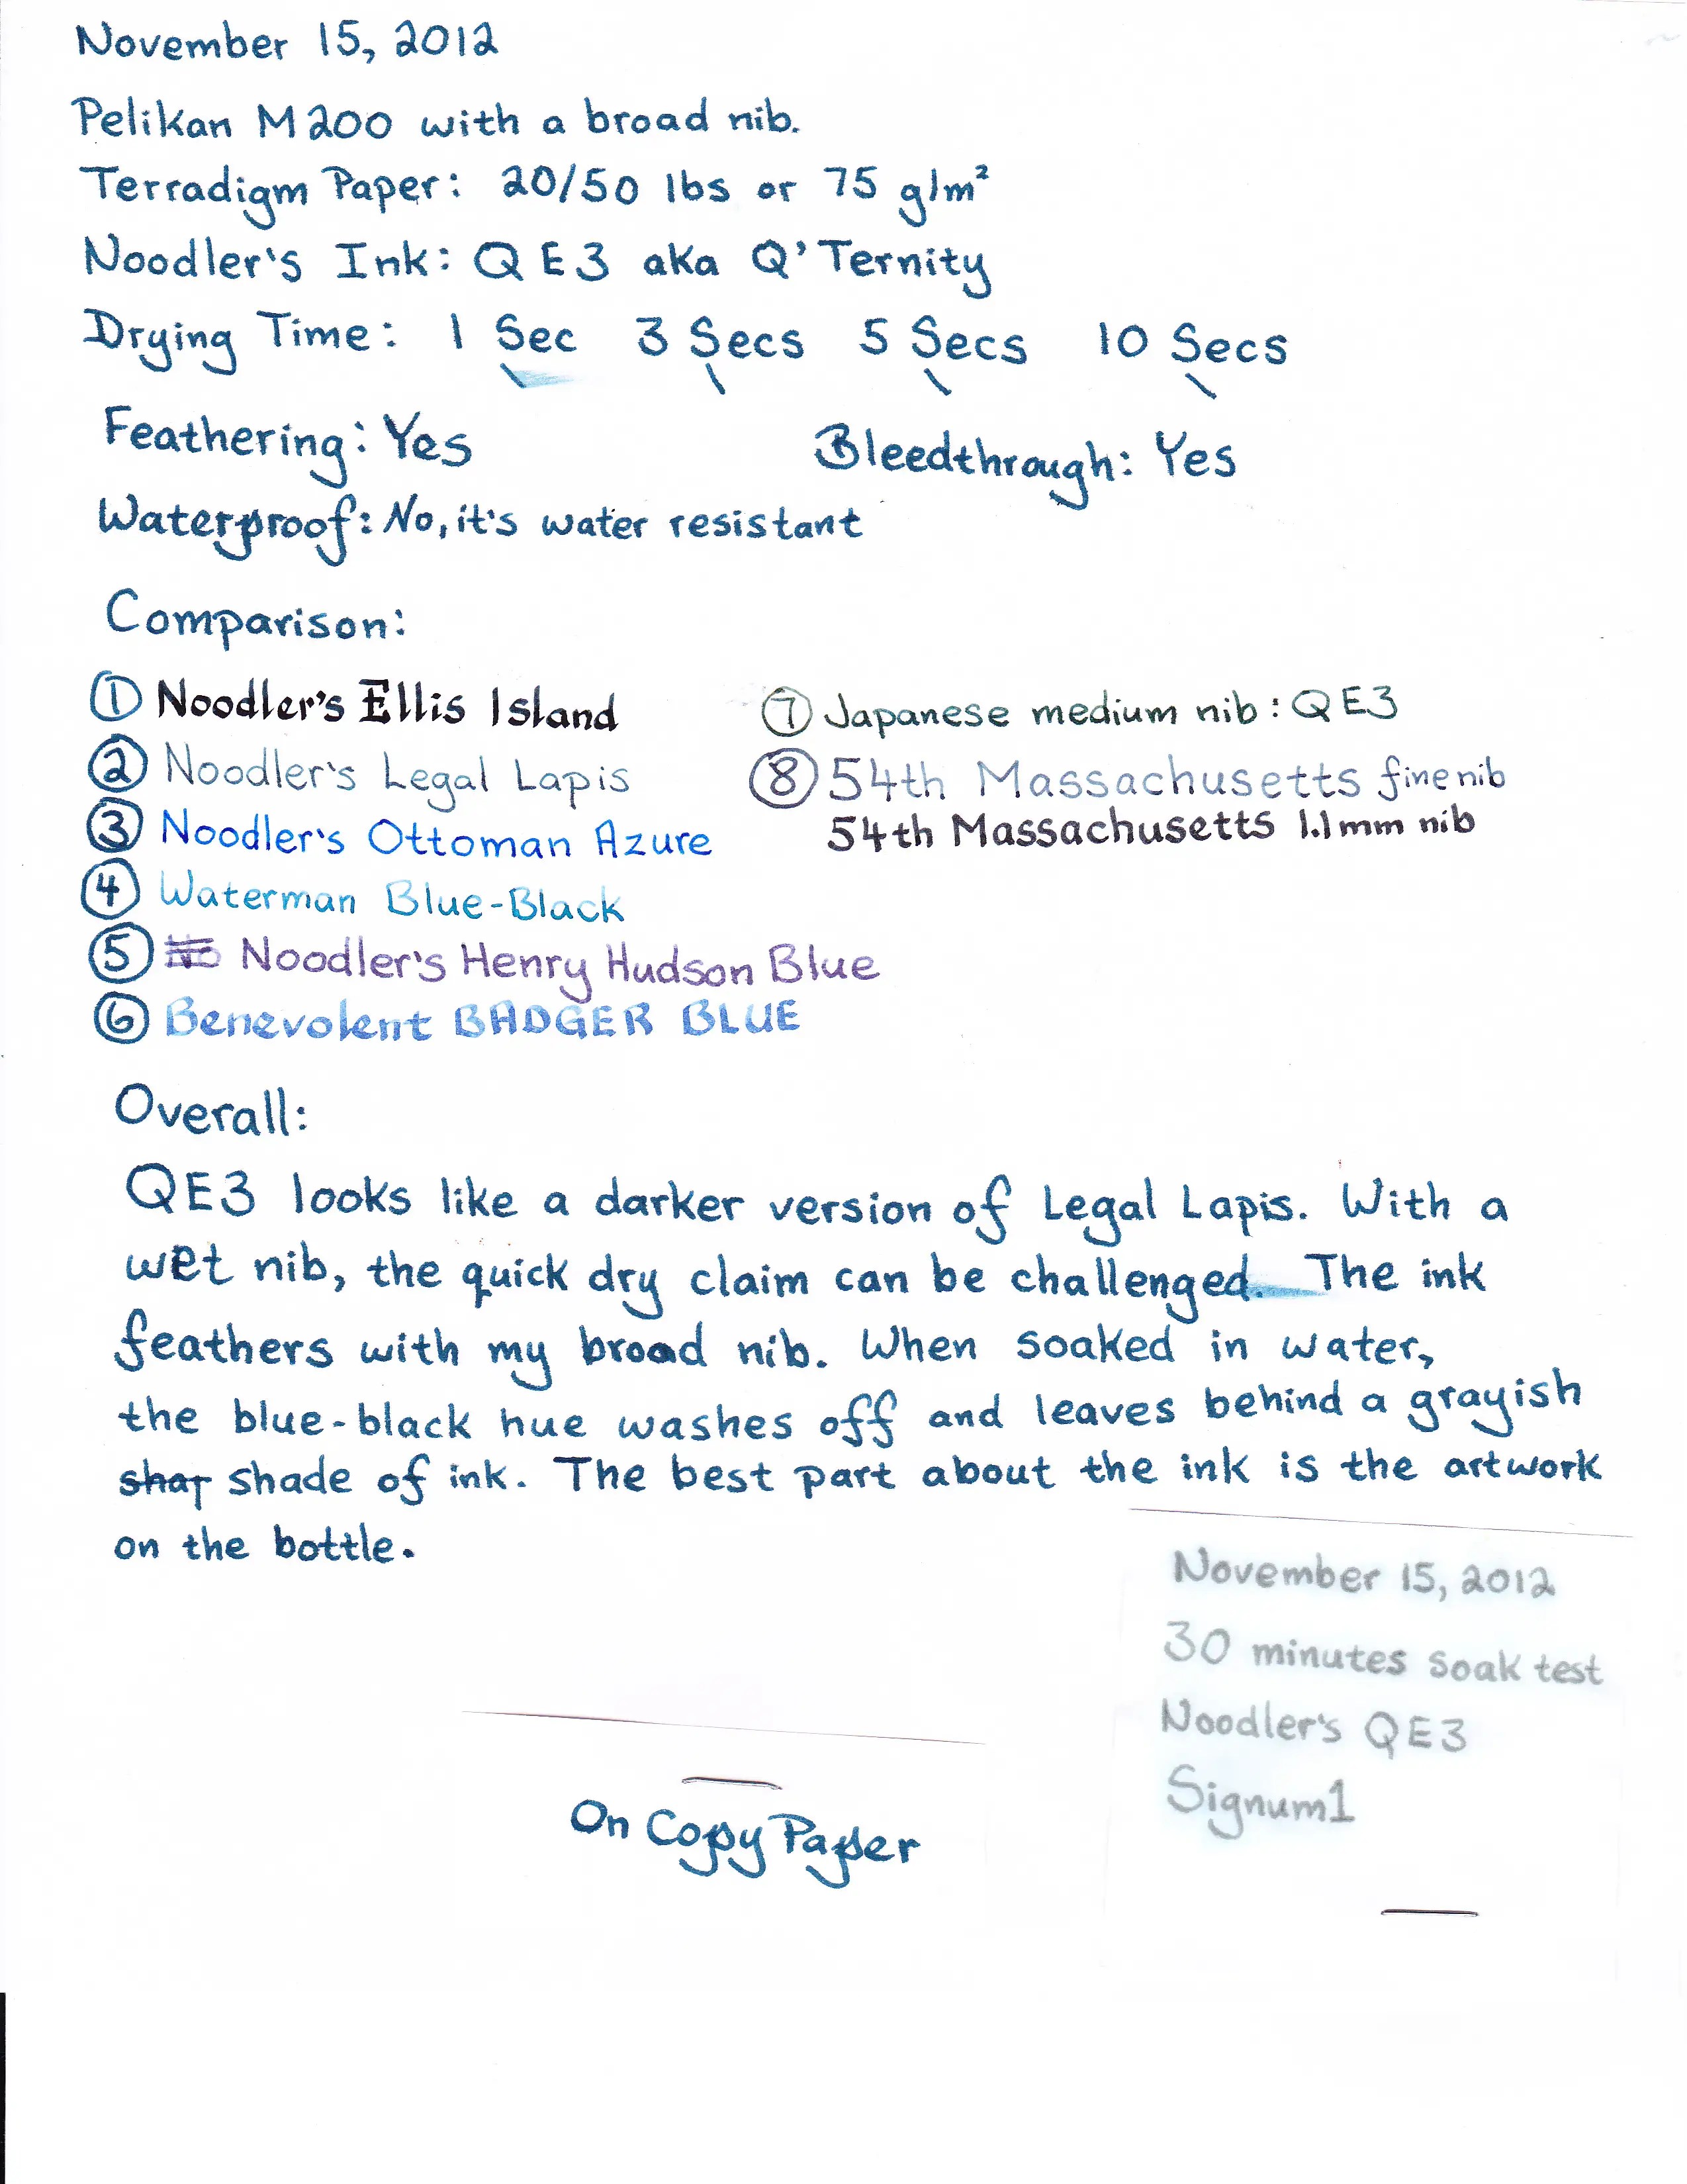 November 15, 2012
Pelikan M200 with a broad nib.
Terradigm Paper: 20/50 lbs or 75 g/m²
Noodler's Ink: QE3 aka Q'Ternity
Drying Time: 1 Sec 3 Secs 5 Secs 10 Secs
Feathering: Yes Bleedthrough: Yes
Waterproof: No, it's water resistant
Comparison:
① Noodler's Ellis Island
② Noodler's Legal Lapis
③ Noodler's Ottoman Azure
④ Waterman Blue-Black
⑤ No Noodler's Henry Hudson Blue
⑥ Benevolent BADGER BLUE
⑦ Japanese medium nib: QE3
⑧ 54th Massachusetts fine nib
54th Massachusetts 1.1mm nib
Overall:
QE3 looks like a darker version of Legal Lapis. With a
wet nib, the quick dry claim can be challenged. The ink
feathers with my broad nib. When soaked in water,
the blue-black hue washes off and leaves behind a grayish
shat shade of ink. The best part about the ink is the artwork
on the bottle.
November 15, 2012
30 minutes soak test
Noodler's QE3
Signum1
On Copy Paper